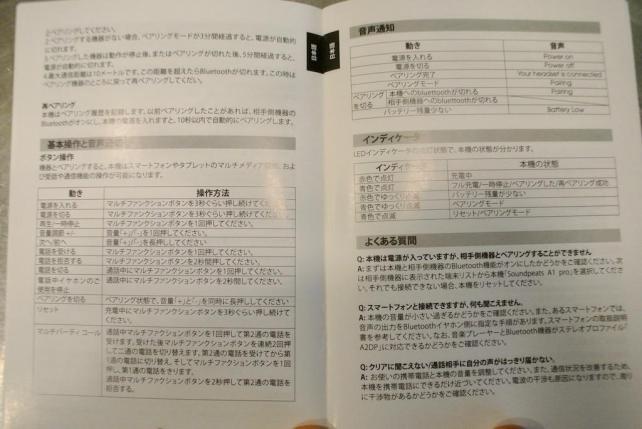 2.ペアリングする機器がない場合、ペアリングモードが3分間経過すると、電源が自動的
に切れます。
3.ペアリングした機器は動作が停止後、またはペアリングが切れた後、5分間経過すると、
電源が自動的に切れます。
4.最大通信距離は10メートルです。この距離を超えたらBluetoothが切れます。この時は
ペアリング機器のところに戻って再ペアリングしてください。
再ペアリング
本機はペアリング履歴を記録します。以前ペアリングしたことがあれば、相手側機器の
Bluetoothがオンにし、本機の電源を入れますと、10秒以内で自動的にペアリングします。
基本操作と音声通知
ボタン操作
機器とペアリングすると、本機はスマートフォンやタブレットのマルチメディア、および
び受話や通信機能の操作が可能になります。
動き 操作方法
電源を入れる マルチファンクションボタンを3秒くらい押し続けてください。
電源を切る マルチファンクションボタンを3秒くらい押し続けてください。
再生/一時停止 マルチファンクションボタンを1回押してください。
音量調節 +/- 音量「+」/「-」を1回押してください。
次へ/前へ 音量「+」/「-」を長押ししてください
電話を受ける マルチファンクションボタンを1回押してください。
電話を拒否する マルチファンクションボタンを2秒間押してください。
電話を切る 通話中にマルチファンクションボタンを1回押してください。
電話中イヤホンのご
使用を停止 通話中にマルチファンクションボタンを2秒間押してください。
ペアリングを切る ペアリング状態で、音量「+」と「-」を同時に長押してください
リセット 充電中にマルチファンクションボタンを3秒くらい押し続けてください。
マルチパーティコール 通話中マルチファンクションボタンを1回押して第2通の電話を
受けます。受けた後マルチファンクションボタンを連続2回押し
て二通の電話を切り替えます。第2通の電話を受けてから第
1通の電話に切り替え、そしてマルチファンクションボタンを1回
押し、第1通の電話をきります。
通話中マルチファンクションボタンを2秒押して第2通の電話を
拒否する。
日本語
日本語
音声通知
動き 音声
電源を入れる Power on
電源を切る Power off
ペアリング完了 Your headset is connected
ペアリングモード Pairing
ペアリング
を切る 本機へのbluetoothが切れる Pairing
相手側機器へのbluetoothが切れる
バッテリー残量が少ない Battery Low
インディケータ
LEDインディケータの点灯状態で、本機の状態が分かります。
インディケータ 本機の状態
赤色で点灯 充電中
青色で点灯 フル充電/一時停止/ペアリングした/再ペアリング成功
赤色でゆっくり点滅 バッテリー残量が少ない
青色でゆっくり点滅 ペアリングモード
青色で点滅 リセット/ペアリングモード
よくある質問
Q: 本機は電源が入っていますが、相手側機器とペアリングすることができません
A: まずは本機と相手側機器のBluetooth機能がオンにしたかどうかをご確認ください。次
は相手側機器に表示された端末リストから本機「Soundpeats A1 pro」を選択してください。
それでも接続できない場合、本機をリセットしてください。
Q: スマートフォンと接続できますが、何も聞こえません。
A: 本機の音量が小さい過ぎるかどうかご確認ください。また、あるスマートフォンでは、
音声の出力をBluetoothイヤホン側に指定な手順があります。スマートフォンの取扱説明
書を参考してください。なお、音楽プレーヤーとBluetooth機器がステレオプロファイル「
A2DP」に対応できるかどうかをご確認ください。
Q: クリアに聞こえない/通話相手に自分の声がはっきり届かない。
A: お使いの携帯電話と本機の音量を調整してください。また、通信状況を改善するため、
本機を携帯電話にできるだけ近づいてください。電波の干渉も原因になりますので、周り
に干渉物があるかどうかをご確認ください。